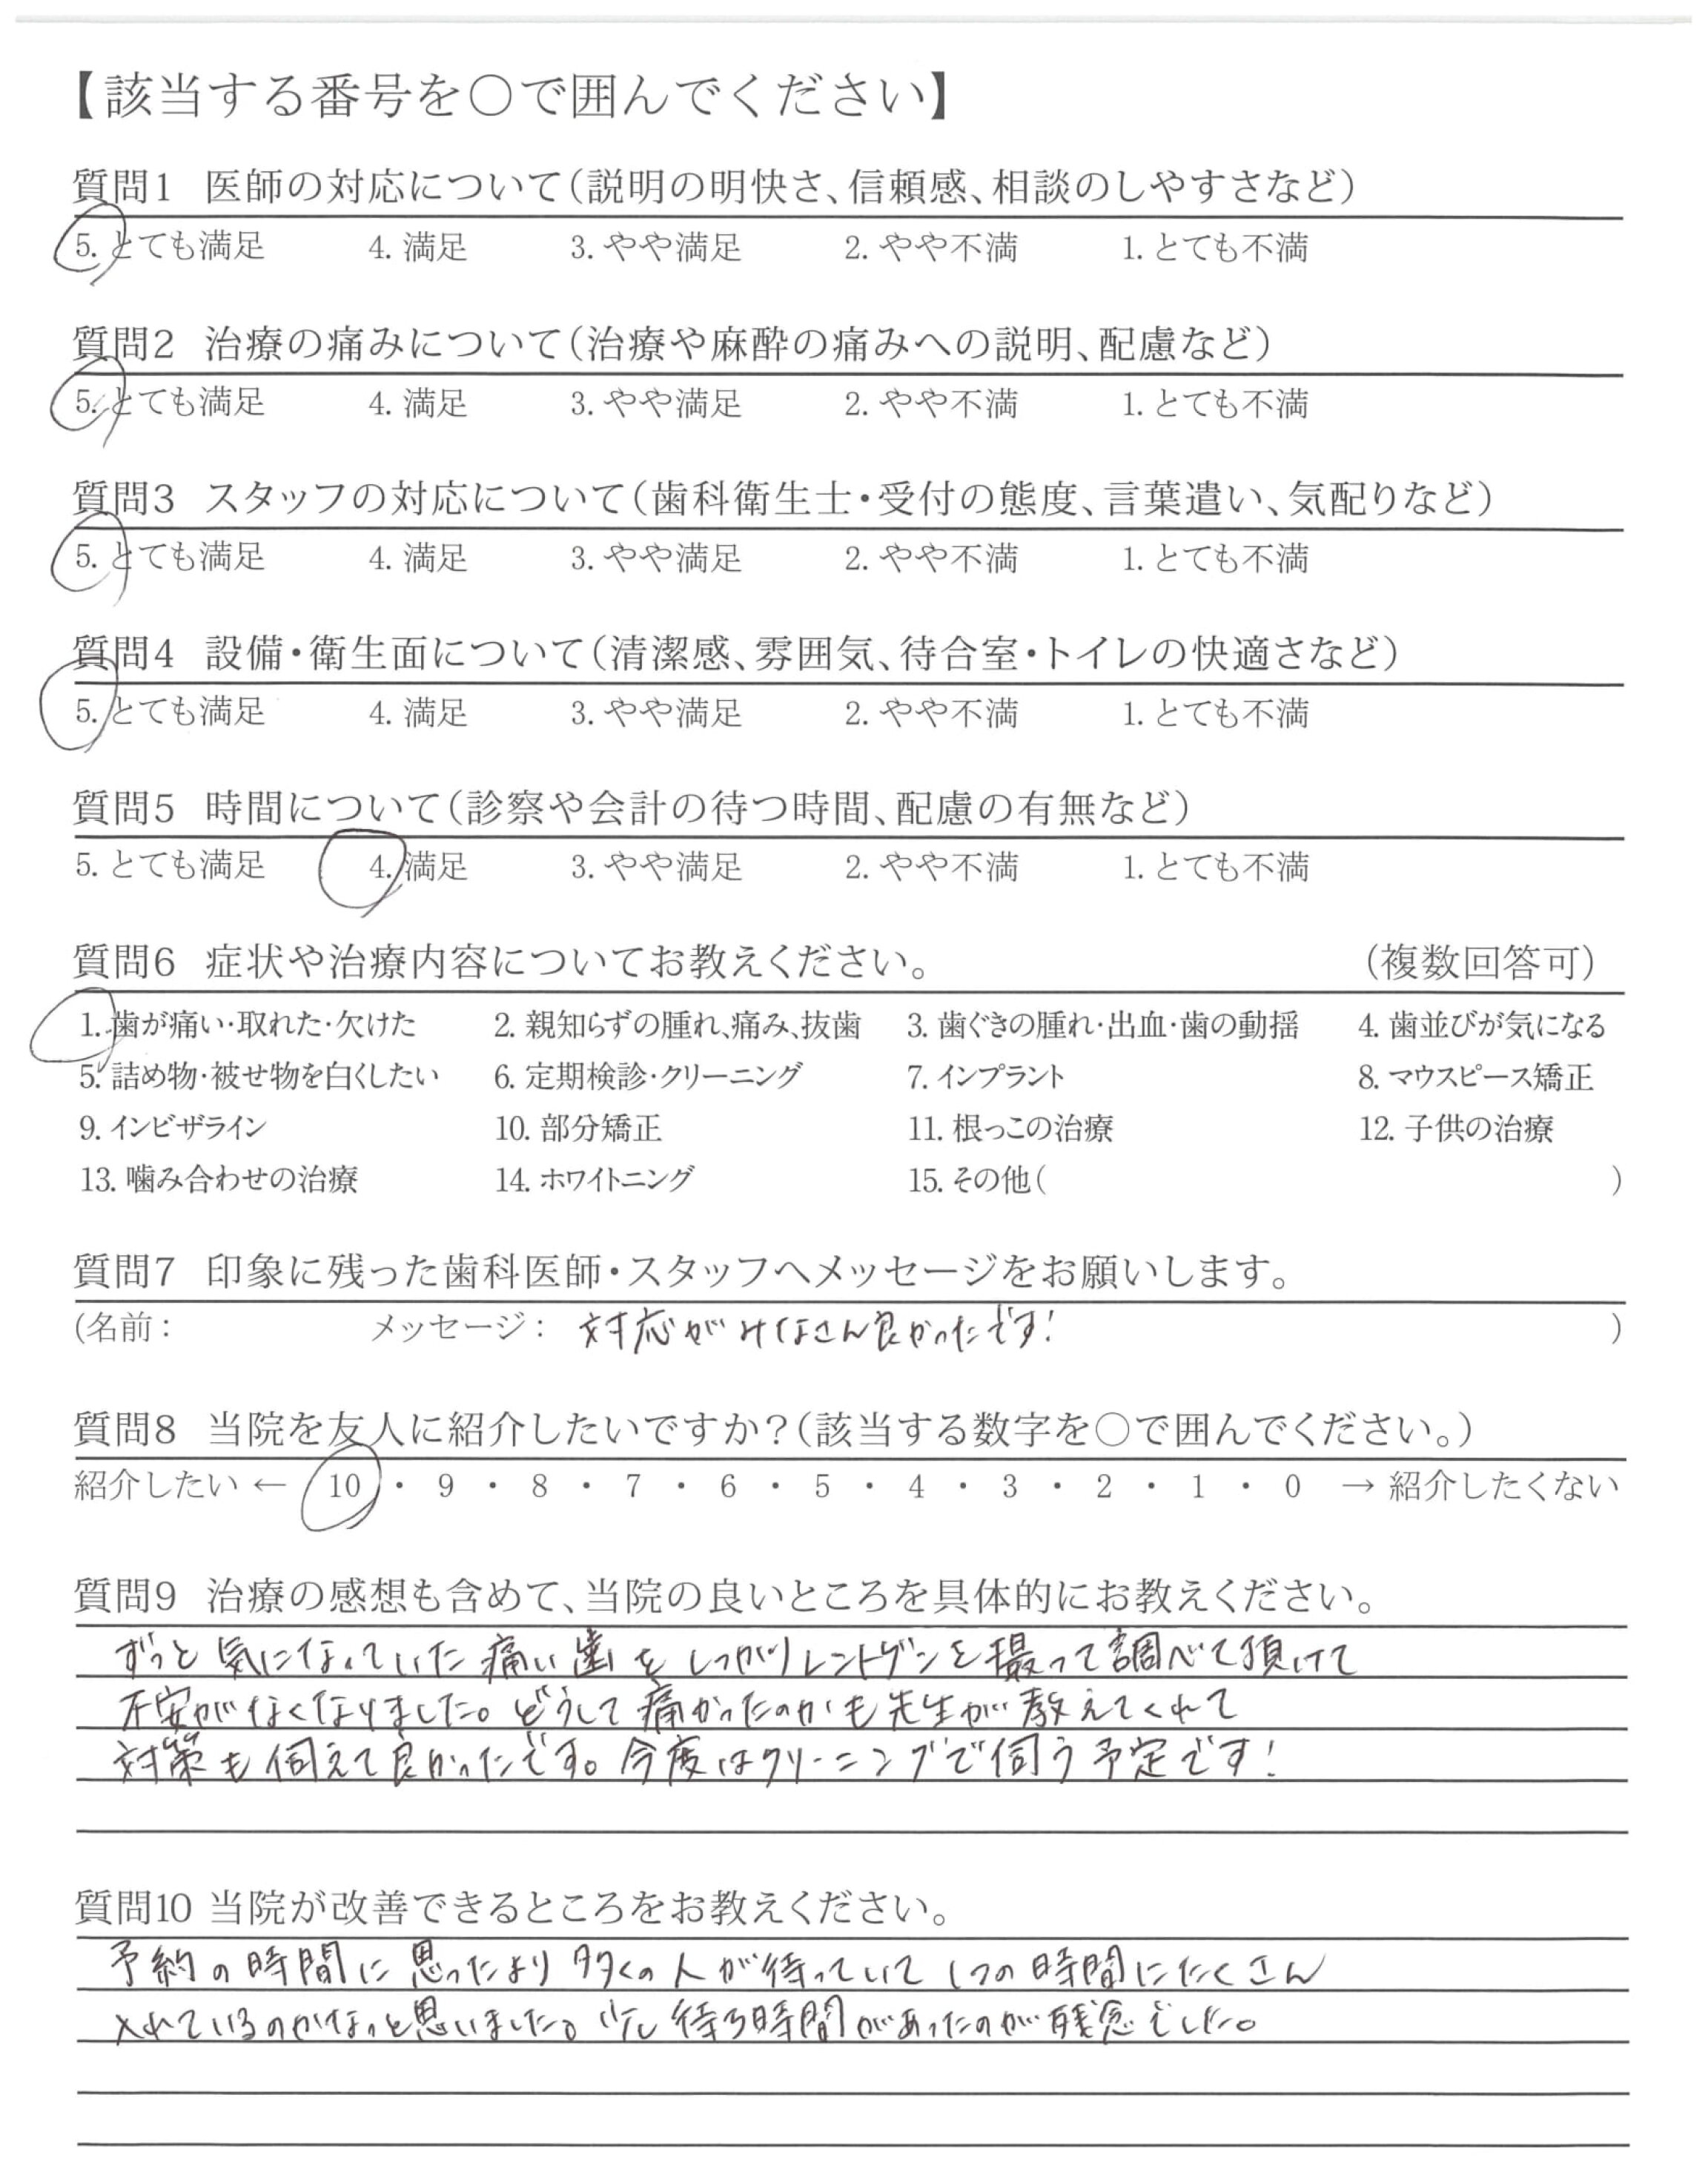 【該当する番号を〇で囲んでください】
質問1 医師の対応について(説明の明快さ、信頼感、相談のしやすさなど)
5. とても満足 4. 満足 3. やや満足 2. やや不満 1. とても不満
質問2 治療の痛みについて(治療や麻酔の痛みへの説明、配慮など)
5. とても満足 4. 満足 3. やや満足 2. やや不満 1. とても不満
質問3 スタッフの対応について(歯科衛生士・受付の態度、言葉遣い、気配りなど)
5. とても満足 4. 満足 3. やや満足 2. やや不満 1. とても不満
質問4 設備・衛生面について(清潔感、雰囲気、待合室・トイレの快適さなど)
5. とても満足 4. 満足 3. やや満足 2. やや不満 1. とても不満
質問5 時間について(診察や会計の待つ時間、配慮の有無など)
5. とても満足 4. 満足 3. やや満足 2. やや不満 1. とても不満
質問6 症状や治療内容についてお教えください。 (複数回答可)
1. 歯が痛い・取れた・欠けた 2. 親知らずの腫れ、痛み、抜歯 3. 歯ぐきの腫れ・出血・歯の動揺 4. 歯並びが気になる
5. 詰め物・被せ物を白くしたい 6. 定期検診・クリーニング 7. インプラント 8. マウスピース矯正
9. インビザライン 10. 部分矯正 11. 根っこの治療 12. 子供の治療
13. 噛み合わせの治療 14. ホワイトニング 15. その他( )
質問7 印象に残った歯科医師・スタッフへメッセージをお願いします。
(名前: メッセージ: 対応がみなさん良かったです! )
質問8 当院を友人に紹介したいですか?(該当する数字を〇で囲んでください。)
紹介したい ← 10 ・ 9 ・ 8 ・ 7 ・ 6 ・ 5 ・ 4 ・ 3 ・ 2 ・ 1 ・ 0 → 紹介したくない
質問9 治療の感想も含めて、当院の良いところを具体的にお教えください。
ずっと気になっていた痛い歯をしっかりレントゲンを撮って調べて頂けて
不安がなくなりました。どうして痛かったのかも先生が教えてくれて
対策も伺えて良かったです。今度はクリーニングで伺う予定です!
質問10 当院が改善できるところをお教えください。
予約の時間に思ったより多くの人が待っていて1つの時間にたくさん
入れているのかなっと思いました。 待つ時間があったのが残念でした。